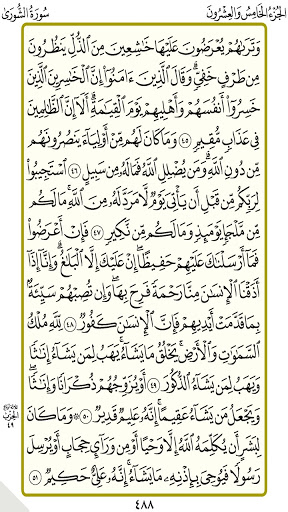 الجزء الخامس والعشرون
سورة الشورى
وَتَرَىٰهُمْ يُعْرَضُونَ عَلَيْهَا خَٰشِعِينَ مِنَ ٱلذُّلِّ يَنظُرُونَ
مِن طَرْفٍ خَفِىٍّۗ وَقَالَ ٱلَّذِينَ ءَامَنُوٓا۟ إِنَّ ٱلْخَٰسِرِينَ ٱلَّذِينَ
خَسِرُوٓا۟ أَنفُسَهُمْ وَأَهْلِيهِمْ يَوْمَ ٱلْقِيَٰمَةِۗ أَلَآ إِنَّ ٱلظَّٰلِمِينَ
فِى عَذَابٍ مُّقِيمٍ ٤٥ وَمَا كَانَ لَهُم مِّنْ أَوْلِيَآءَ يَنصُرُونَهُم
مِّن دُونِ ٱللَّهِۗ وَمَن يُضْلِلِ ٱللَّهُ فَمَا لَهُۥ مِن سَبِيلٍ ٤٦ ٱسْتَجِيبُوا۟
لِرَبِّكُم مِّن قَبْلِ أَن يَأْتِىَ يَوْمٌ لَّا مَرَدَّ لَهُۥ مِنَ ٱللَّهِۚ مَا لَكُم
مِّن مَّلْجَإٍ يَوْمَئِذٍ وَمَا لَكُم مِّن نَّكِيرٍ ٤٧ فَإِنْ أَعْرَضُوا۟
فَمَآ أَرْسَلْنَٰكَ عَلَيْهِمْ حَفِيظًاۖ إِنْ عَلَيْكَ إِلَّا ٱلْبَلَٰغُۗ وَإِنَّآ إِذَآ
أَذَقْنَا ٱلْإِنسَٰنَ مِنَّا رَحْمَةً فَرِحَ بِهَاۖ وَإِن تُصِبْهُمْ سَيِّئَةٌۢ
بِمَا قَدَّمَتْ أَيْدِيهِمْ فَإِنَّ ٱلْإِنسَٰنَ كَفُورٌ ٤٨ لِّلَّهِ مُلْكُ
ٱلسَّمَٰوَٰتِ وَٱلْأَرْضِۚ يَخْلُقُ مَا يَشَآءُۚ يَهَبُ لِمَن يَشَآءُ إِنَٰثًا
وَيَهَبُ لِمَن يَشَآءُ ٱلذُّكُورَ ٤٩ أَوْ يُزَوِّجُهُمْ ذُكْرَانًا وَإِنَٰثًاۖ
وَيَجْعَلُ مَن يَشَآءُ عَقِيمًاۚ إِنَّهُۥ عَلِيمٌ قَدِيرٌ ٥٠ ۞ وَمَا كَانَ
لِبَشَرٍ أَن يُكَلِّمَهُ ٱللَّهُ إِلَّا وَحْيًا أَوْ مِن وَرَآئِ حِجَابٍ أَوْ يُرْسِلَ
رَسُولًا فَيُوحِىَ بِإِذْنِهِۦ مَا يَشَآءُۚ إِنَّهُۥ عَلِىٌّ حَكِيمٌ ٥١
الحزب
٤٩
٤٨٨